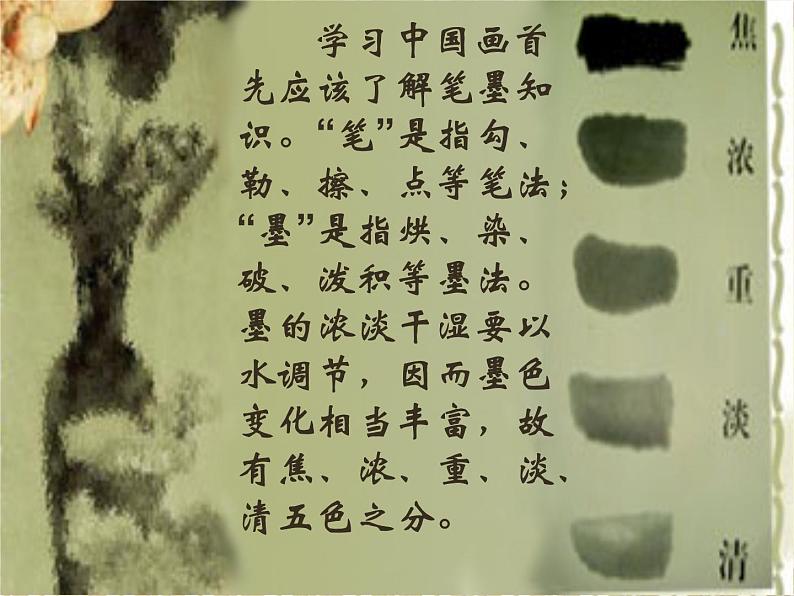 学习中国画首
先应该了解笔墨知
识。“笔”是指勾、
勒、擦、点等笔法；
“墨”是指烘、染、
破、泼积等墨法。
墨的浓淡干湿要以
水调节，因而墨色
变化相当丰富，故
有焦、浓、重、淡、
清五色之分。
焦
浓
重
淡
清